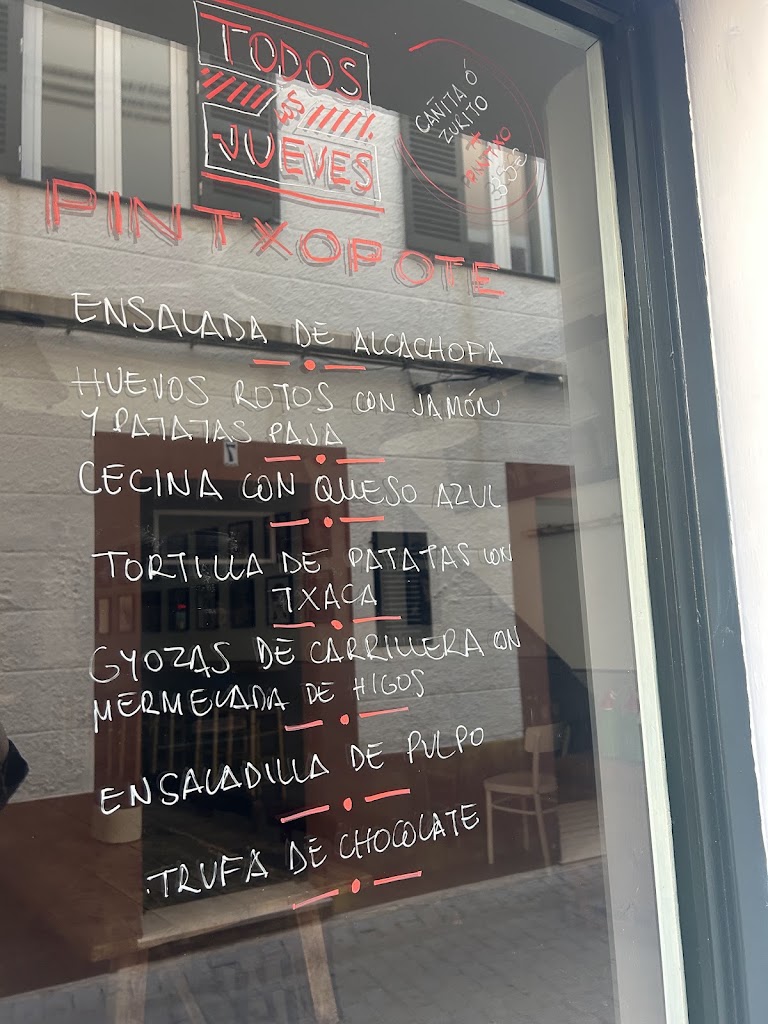 TODOS
LOS
JUEVES
CAÑITA Ó
ZURITO
+
PINTXO
PINTXOPOTE
ENSALADA DE ALCACHOFA
HUEVOS ROTOS CON JAMÓN
Y PATATAS PAJA
CECINA CON QUESO AZUL
TORTILLA DE PATATAS CON
TXACA
GYOZAS DE CARRILLERA CON
MERMELADA DE HIGOS
ENSALADILLA DE PULPO
TRUFA DE CHOCOLATE